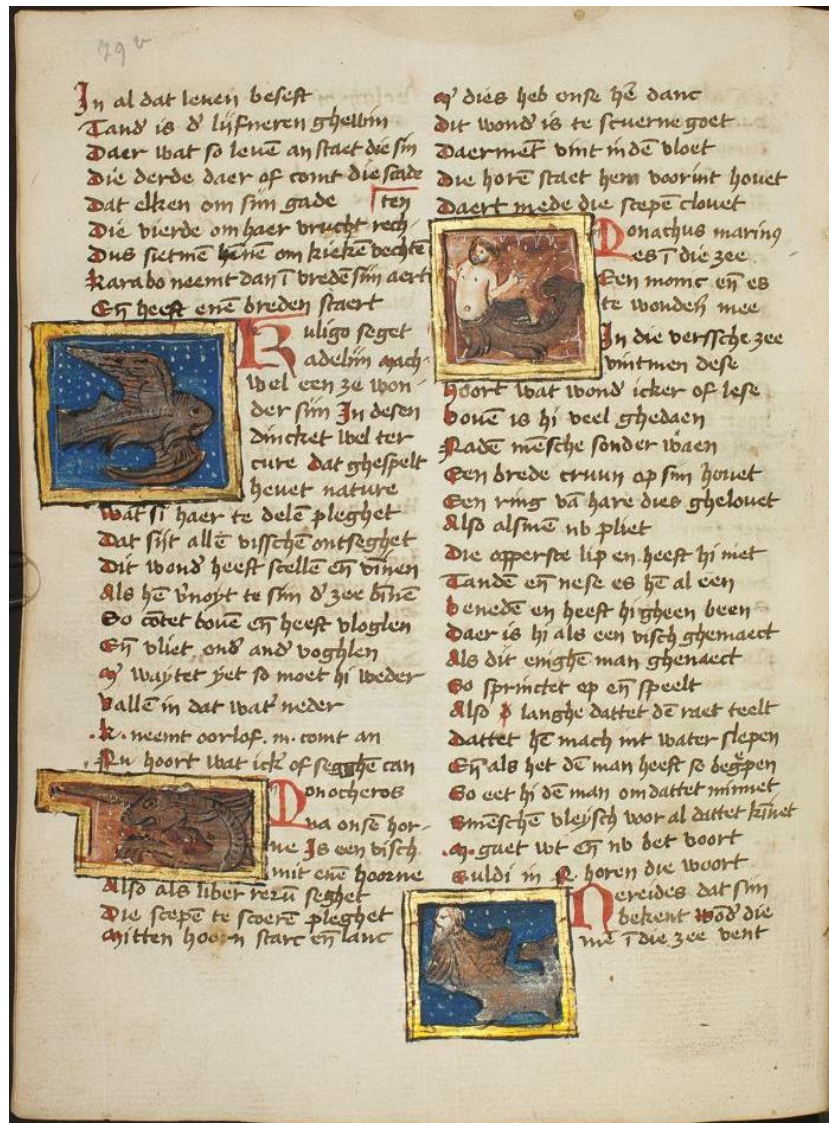 79 v
In al dat leuen beseft
Tand' is d' lijfneren ghewin
Daer wat so leuē an staet die sin
Die derde daer of comt die scade
Dat elken om sijn gade ten
Die vierde om haer vrucht rech
Dus sietmē hēnē om kiekē vechtē
Karabo neemt dan ī vredē sijn aert
Eñ heeft enē breden staert
Kuligo seget
adelijn mach
wel een ze won
der sijn In desen
dincket wel ter
cure dat ghespelt
heuet nature
wat si haer te delē pleghet
Dat sijt allē visschē ontseghet
Dit wond' heeft scellē eñ vinnen
Als hē v'noyt te sijn d' zee binē
So cōtet bouē eñ heeft vloglen
Eñ vliet ond' and' voghlen
M' waytet yet so moet hi weder
vallē in dat wat' neder
.k. neemt oorlof .m. comt an
Nu hoort wat ick of segghē can
Monocheros
va onsē hor
ne Is een visch
mit enē hoorne
Also als liber rerū seghet
Die scepē te scoerē pleghet
Mitten hoorn starc eñ lanc
M' dies heb onse hē danc
Dit wond' is te scuerne goet
Daermēt vint in dē vloet
Die horē staet hem voorint houet
Daert mede die scepē clouet
Monachus marinꝰ
es ī die zee
Een monic eñ es
te wonden mee
In die verssche zee
vintmen dese
hoort wat wond' icker of lese
bouē is hi veel ghedaen
Nadē mēsche sonder waen
Een brede cruun op sijn houet
Een ring vā hare dies ghelouet
Also alsmē nv pliet
Die opperste lip en heeft hi niet
Tandē eñ nese es hē al een
benedē en heeft hi gheen been
Daer is hi als een visch ghemaect
Als dit enighe man ghenaect
So sprinctet op eñ speelt
Also langhe dattet dē raet teelt
Dattet hē mach int water slepen
Eñ als het dē man heeft so begrepen
So eet hi dē man om dattet minnet
Smēschē vleysch voor al dattet kīnet
.M. gaet wt eñ nv bet voort
Suldi in N horen die woort
Nereides dat sijn
bekent wōd' die
mē ī die zee vent